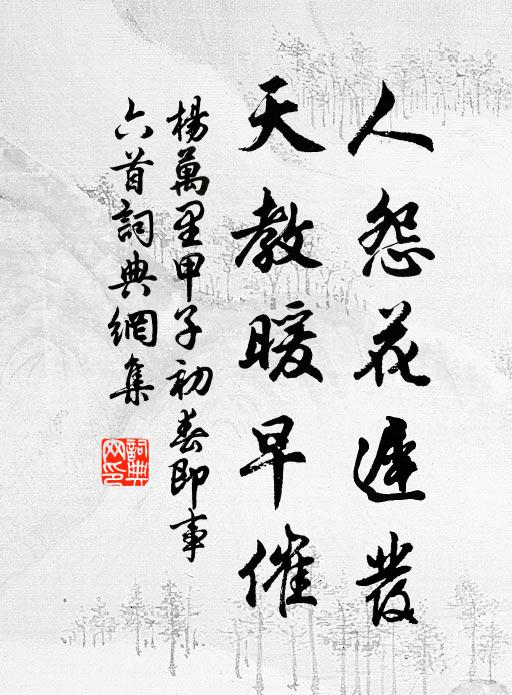 人怨花遲發
天教暖早催
楊萬里甲子初春即事
六首詞典網集
詞典網印